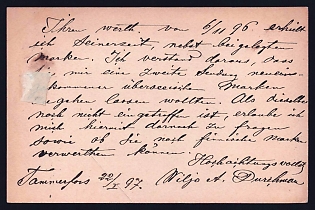 Ihre werth von 6/11 96 erhielt
ich Seinerzeit, nebst beigelegten
Marken. Ich verstand daraus, dass
Sie, mir eine zweite Sendung
überseeische Marken
gehen lassen wollten. Als dieselbe
noch nicht eingetroffen ist, erlaube ich
mich hiermit darnach zu fragen
sowie ob Sie noch finnische Marken
verwerthen können.
Hochachtungsvoll
Tammerfors 22/I 97. Viljo A.